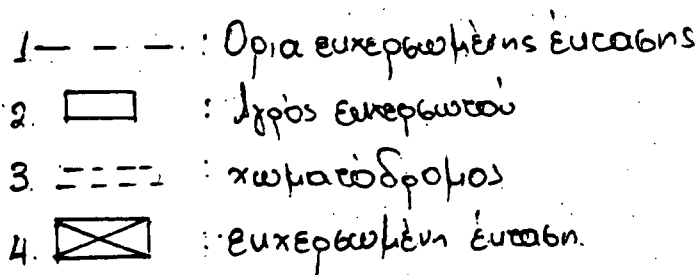 1 — — — . : Ορια εκχερσωμένης έκτασης
2. : Αγρός εκχερσωτού
3. : χωματόδρομος
4. : εκχερσωμένη έκταση.